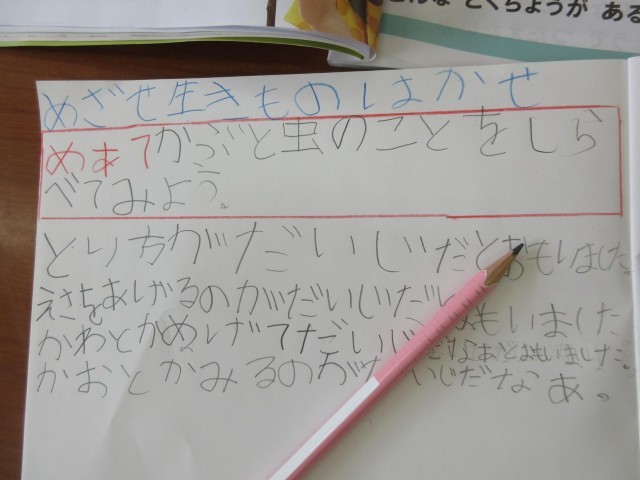 こんな とくちょうが ある
めざせ生きものはかせ
めあて かぶと虫のことをしら
べてみよう。
とり方がだいじだとおもいました。
えさをあげるのがだいじだ
かわとかめしげてだいじ だなあとおもいました。
かおとかみるのがだいじだなあ。